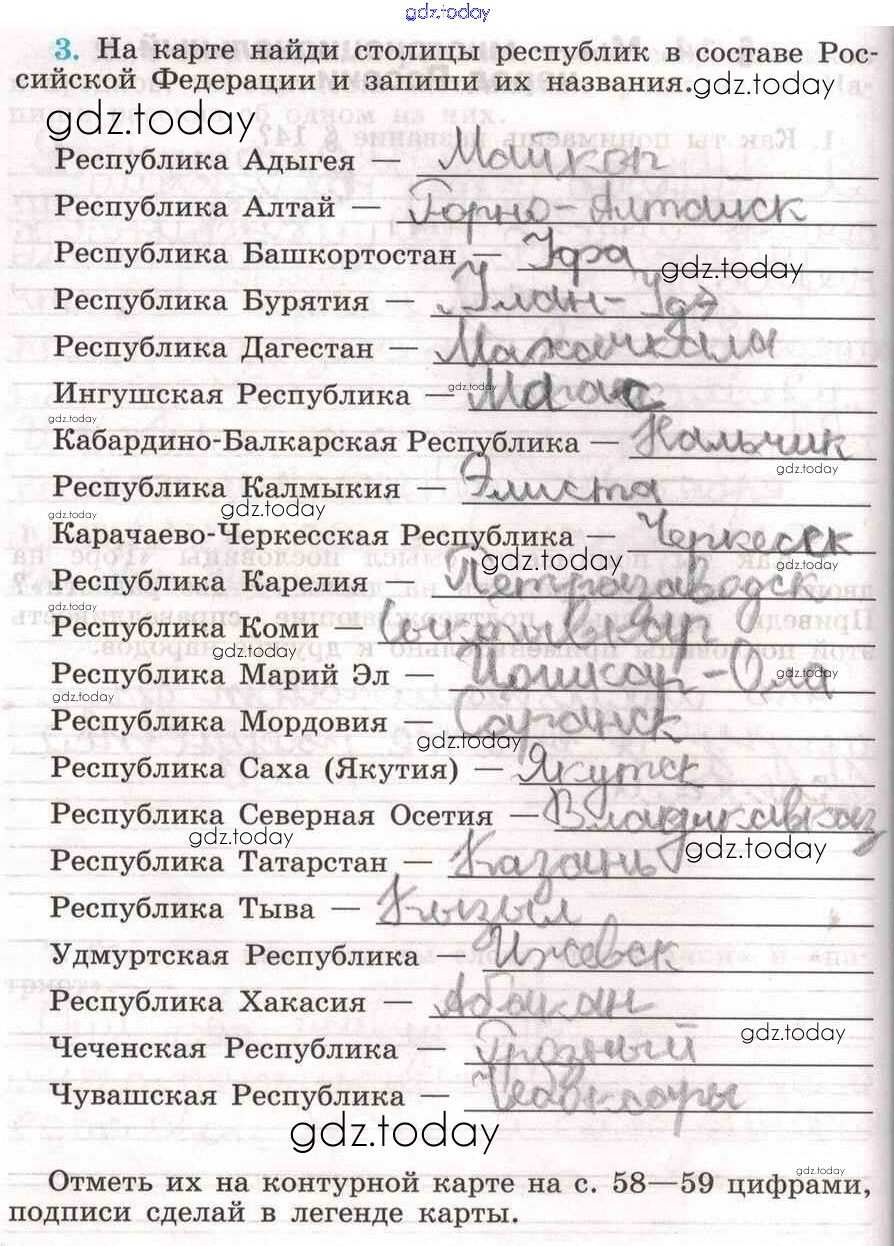 gdz.today
3. На карте найди столицы республик в составе Рос-
сийской Федерации и запиши их названия. gdz.today
gdz.today
Республика Адыгея — Майкоп
Республика Алтай — Горно-Алтайск
Республика Башкортостан — Уфа gdz.today
Республика Бурятия — Улан-Удэ
Республика Дагестан — Махачкала
gdz.today
Ингушская Республика — Магас
gdz.today
Кабардино-Балкарская Республика — Нальчик
gdz.today
Республика Калмыкия — Элиста
gdz.today gdz.today
Карачаево-Черкесская Республика — Черкесск
gdz.today gdz.today
Республика Карелия — Петрозаводск
gdz.today
Республика Коми — Сыктывкар
gdz.today
Республика Марий Эл — Йошкар-Ола gdz.today
gdz.today
Республика Мордовия — Саранск
gdz.today
Республика Саха (Якутия) — Якутск
Республика Северная Осетия — Владикавказ
gdz.today gdz.today
Республика Татарстан — Казань
Республика Тыва — Кызыл
Удмуртская Республика — Ижевск
Республика Хакасия — Абакан
gdz.today
Чеченская Республика — Грозный
Чувашская Республика —
gdz.today
gdz.today
Отметь их на контурной карте на с. 58—59 цифрами,
подписи сделай в легенде карты.